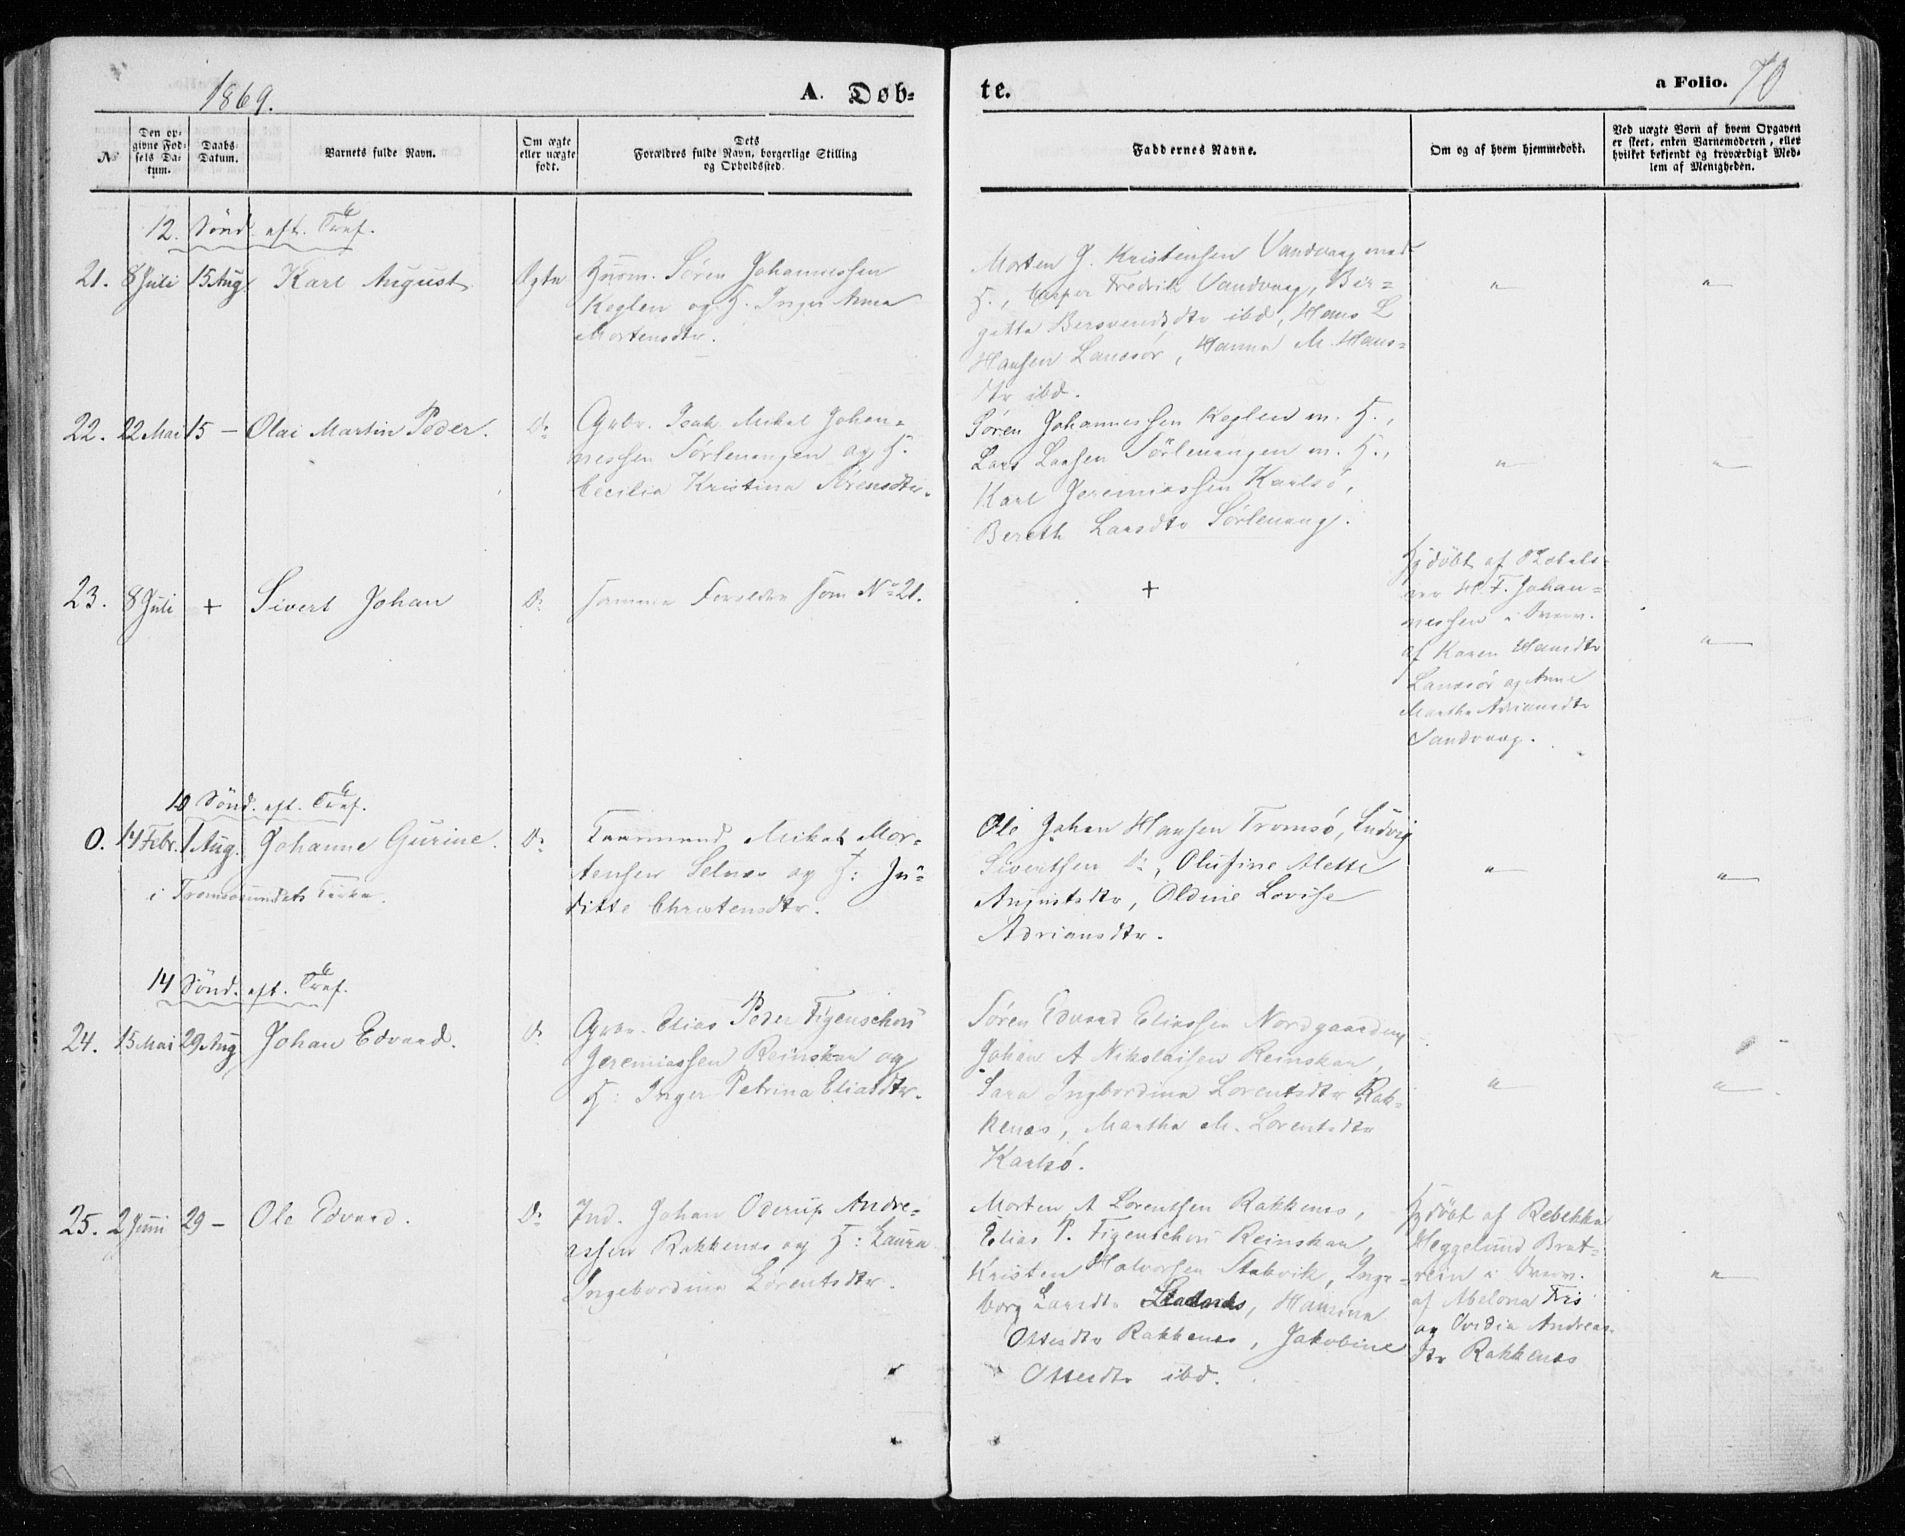 1869.
A. Døb-
te.
a Folio. 70
No
Den op-
givne Fød-
sels Da-
tum.
Daabs-
Datum.
Barnets fulde Navn.
Om ægte
eller uægte
født.
Dets
Forældres fulde Navn, borgerlige Stilling
og Opholdssted.
Faddernes Navne.
Om og af hvem hjemmedøbt.
Ved uægte Born af hvem Opgaven
er skeet, enten Barnemoderen, eller
hvilket bekjendt og troværdigt Med-
lem af Menigheden.
12. Sönd. eft. Tref.
21. 8 Juli 15 Aug Karl August Ægte
Husm. Sören Johannessen
Keglen og H. Inger Anna
Mortensdtr.
Morten J. Kristensen Vandvaag med
H., Casper Fredrik Vandvaag, Bir-
gitte Bersvendsdtr ibd, Hans L
Hansen Lanesör, Hanna M. Hans-
dtr ibd.
" "
22. 22 Mai 15 - Olai Martin Peder. Do
Grbr. Isak Mikal Johan-
nessen Sörlenangen og H.
Cecilia Kristina Sörensdtr.
Sören Johannessen Keglen m. H.,
Lars Larsen Sörlenangen m. H.,
Karl Jeremiassen Karlsö,
Bereth Larsdtr Sörlenang.
" "
23. 8 Juli + Sivert Johan Do
samme Forældre som No 21.
+
Hjdöbt af
H. F. Johan-
nessen i Overv.
af Karen Hansdtr
Lanesör og Anne
Martha Adriansdtr
Vandvaag.
"
10 Sönd. eft. Tref.
0. 14 Febr. 1 Aug. Johanne Gurine. Do
i Tromsösundets Kirke.
Mikal Mor-
tensen Selnæs og H: Ju-
ditte Christensdtr.
Ole Johan Hansen Tromsö, Ludvig
Sivertsen Do, Olufine Alette
Augustsdtr, Oldine Lovise
Adriansdtr.
" "
14 Sönd. eft. Tref.
24. 15 Mai 29 Aug Johan Edvard. Do
Grbr. Elias Peder Figenschou
Jeremiassen Reinskar og
H: Inger Petrina Eliasdtr.
Sören Edvard Eliassen Nordgaarden,
Johan A Nikolaisen Reinskar,
Sara Ingbordina Lorentsdtr Rak-
kenæs, Martha M. Lorentsdtr
Karlsö.
" "
25. 2 Juni 29 - Ole Edvard. Do
Ind. Johan Oderup Andre-
assen Rakkenæs og H: Laura
Ingebordina Lorentsdtr.
Morten A Lorentsen Rakkenæs,
Elias P. Figenschou Reinskar,
Kristen Halvorsen Stakvik, Inge-
borg Larsdtr, Hansina
Ottesdtr Rakkenes, Jakobine
Ottesdtr ibd.
Hjdöbt af Rebekka
Heggelund Brat-
rein i Overv.
af Abelona Friis
og Ovidia Andreas-
dtr Rakkenæs
"